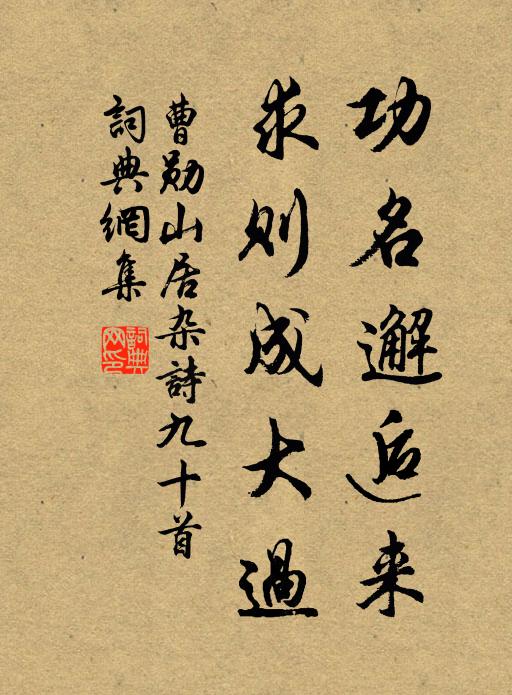 功名邂逅来
求则成大過
曹勋山居杂詩九十首
詞典網集
詞典網印